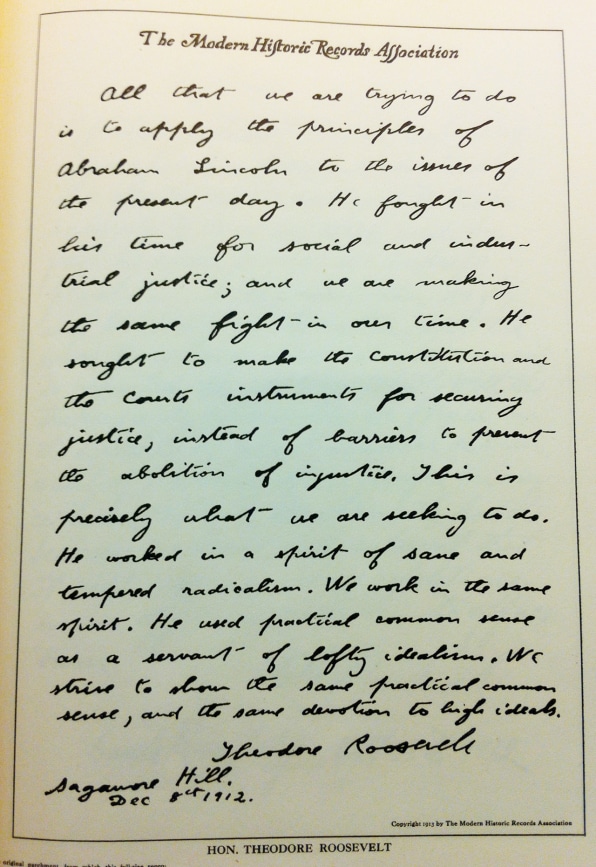 The Modern Historic Records Association
All that we are trying to do
is to apply the principles of
Abraham Lincoln to the issues of
the present day. He fought in
his time for social and indus-
trial justice; and we are making
the same fight in our time. He
sought to make the Constitution and
the Courts instruments for securing
justice, instead of barriers to prevent
the abolition of injustice. This is
precisely what we are seeking to do.
He worked in a spirit of sane and
tempered radicalism. We work in the same
spirit. He used practical common sense
as a servant of lofty idealism. We
strive to show the same practical common
sense, and the same devotion to high ideals.
Theodore Roosevelt
Sagamore Hill.
Dec 8th 1912.
Copyright 1913 by The Modern Historic Records Association
HON. THEODORE ROOSEVELT
original parchment, from which this